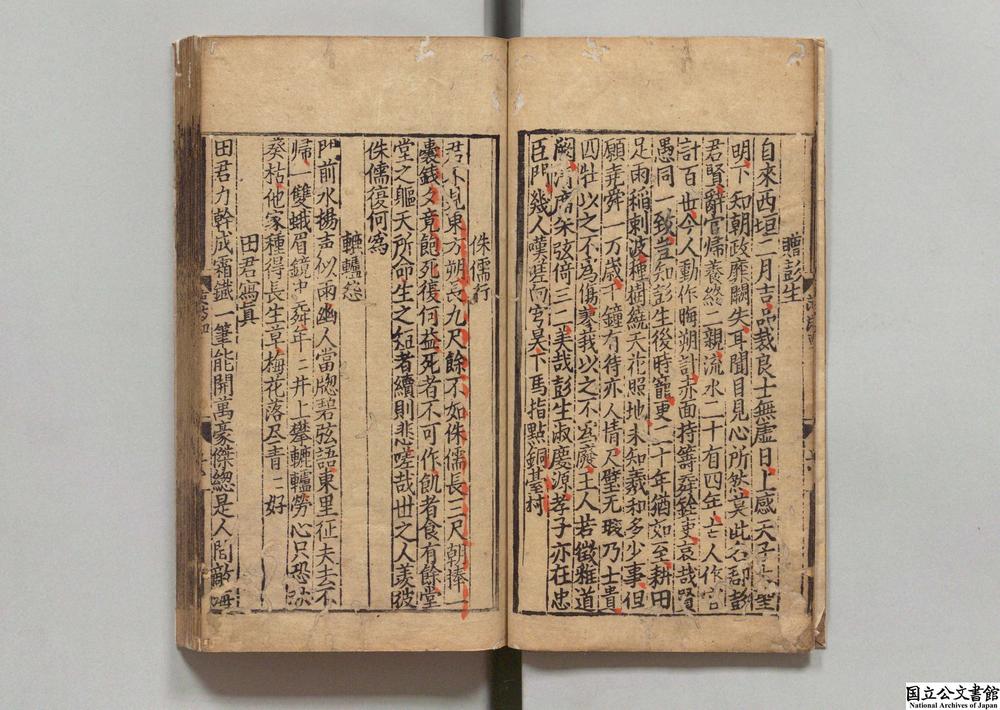 贈彭生
自來西垣二月吉品裁良士無虛日上感天子大聖
明下知朝政靡闕失耳聞目見心所然莫此名郡彭
君賢辭官歸養終二親流水二十有四年亡人作
計百世今人動作晦朔計赤面持籌群銓吏哀哉賢
愚同一致豈知彭生後時寵更二十年猶如至耕田
足雨稻刺波種樹繞天花照地未知羲和多少事但
願堯舜一万歲千鐘有待亦人情尺璧无瑕乃士貴
四牡以之不為傷蓼莪以之不為廢王人若徵雅道
闕清廟朱弦倚三美哉彭生淑慶源孝子亦在忠
臣門幾人嘆嗟向穹昊下馬指點銅臺村
侏儒行
君不見東方朔長九尺餘不如侏儒長三尺朝捧一
囊錢夕竟飽死復何益死者不可作飢者食有餘堂
堂之軀天所命生之短者續則悲嗟哉世之人羨彼
侏儒復何為
轆轤怨
門前水楊声似雨幽人當牕碧弦語東里征夫去不
歸一雙蛾眉鏡中舞年二井上攀轆轤勞心只恐
葵枯他家種得長生草梅花落尽青二好
田君寫真
田君力幹成霜鐵一筆能開萬豪傑緫是人間敵
国立公文書館
National Archives of Japan